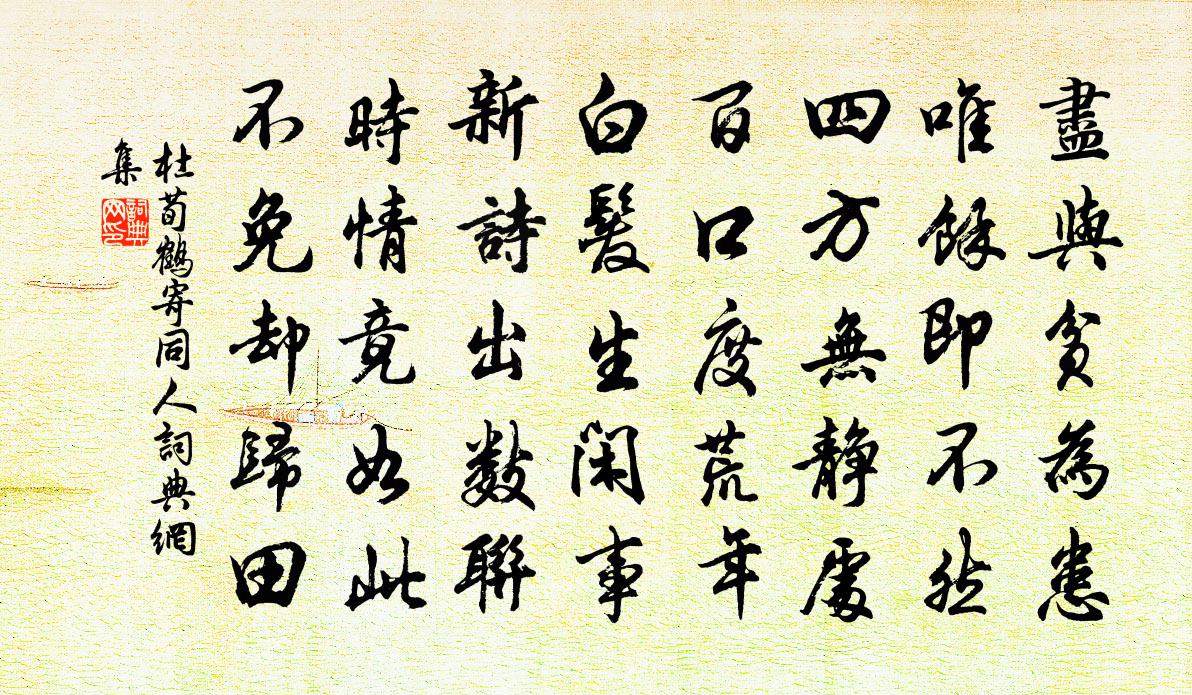 盡與貧爲患
唯餘即不然
四方無靜處
百口度荒年
白髮生閑事
新詩出數聯
時情竟如此
不免却歸田
杜荀鶴寄同人詞典網
集
詞典
网印